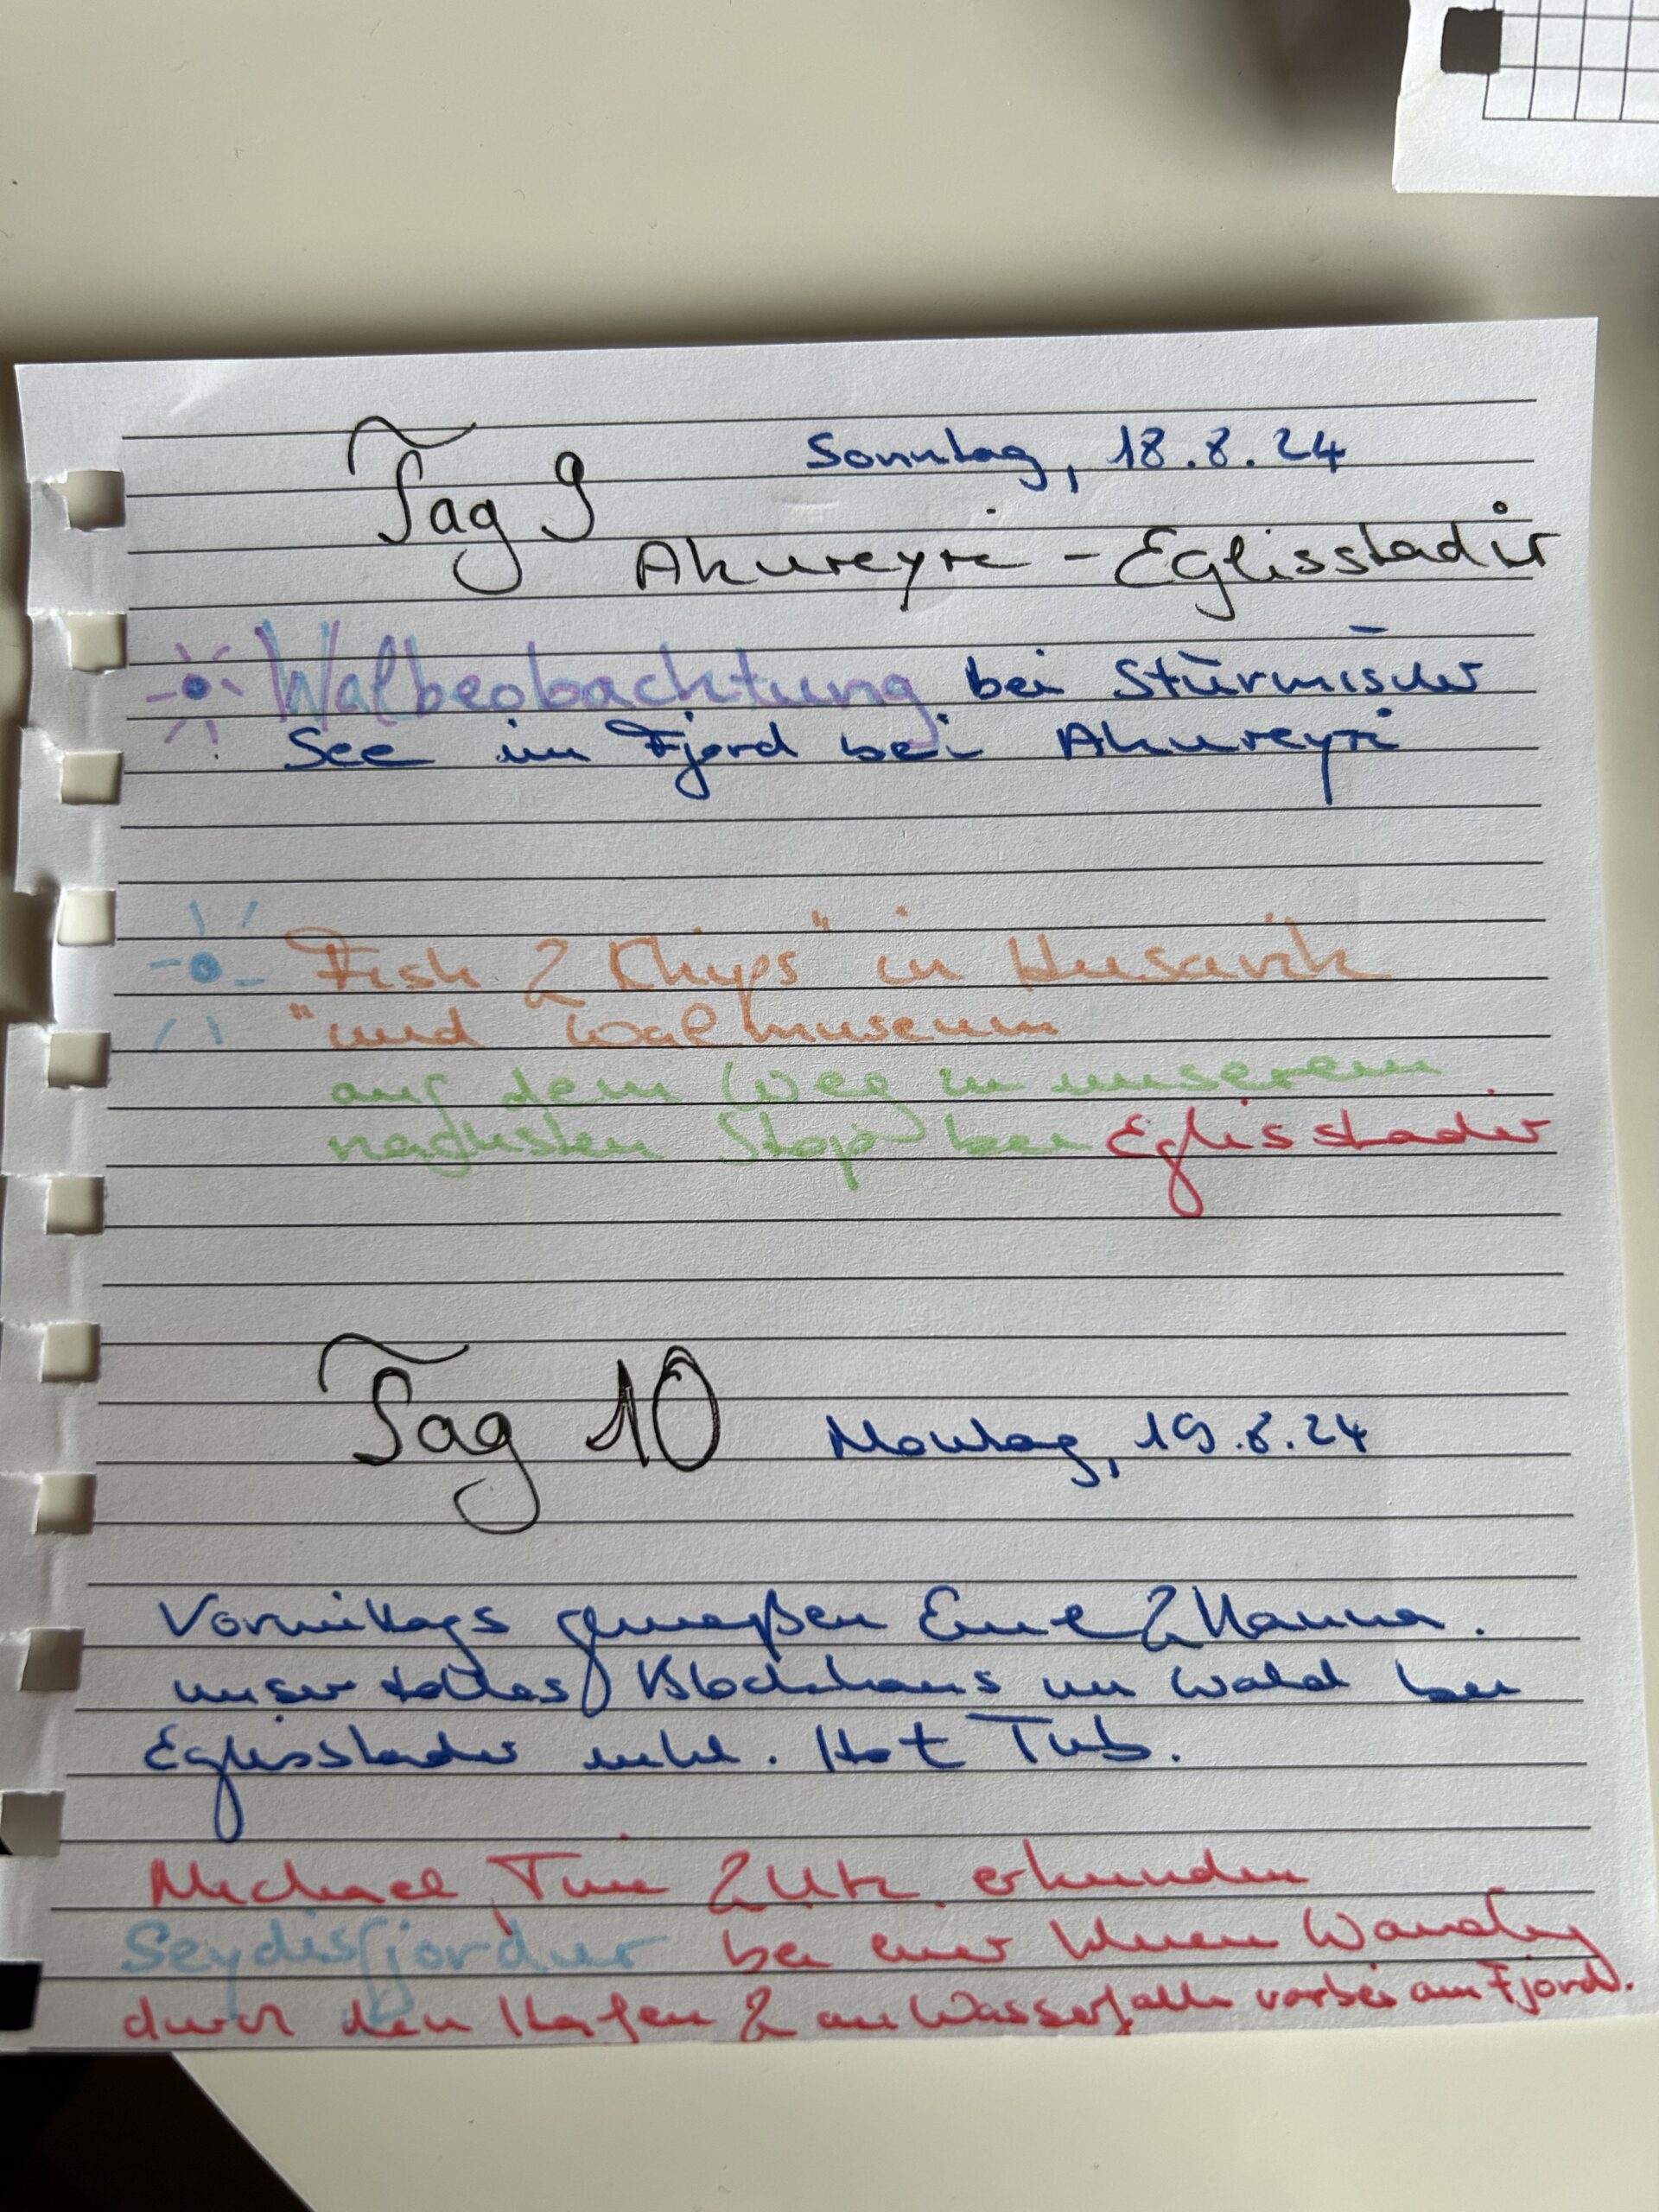 Tag 9 Sonntag, 18.8.24
Akureyri - Eglisstadir
Walbeobachtung bei Stürmischer
See im Fjord bei Akureyri
Fish & Chips" in Husavik
"und Walmuseum
auf dem Weg zu unserem
nächsten Stop bei Eglisstadir
Tag 10 Montag, 19.8.24
Vormittags genießen & Hanna.
unser tolles Blockhaus im Wald bei
Eglisstadir inkl. Hot Tub.
Michael, Tim & Utz erkunden
Seydisfjordur bei einer kleinen Wandrg
durch den Hafen & an Wasserfälle vorbei am Fjord.